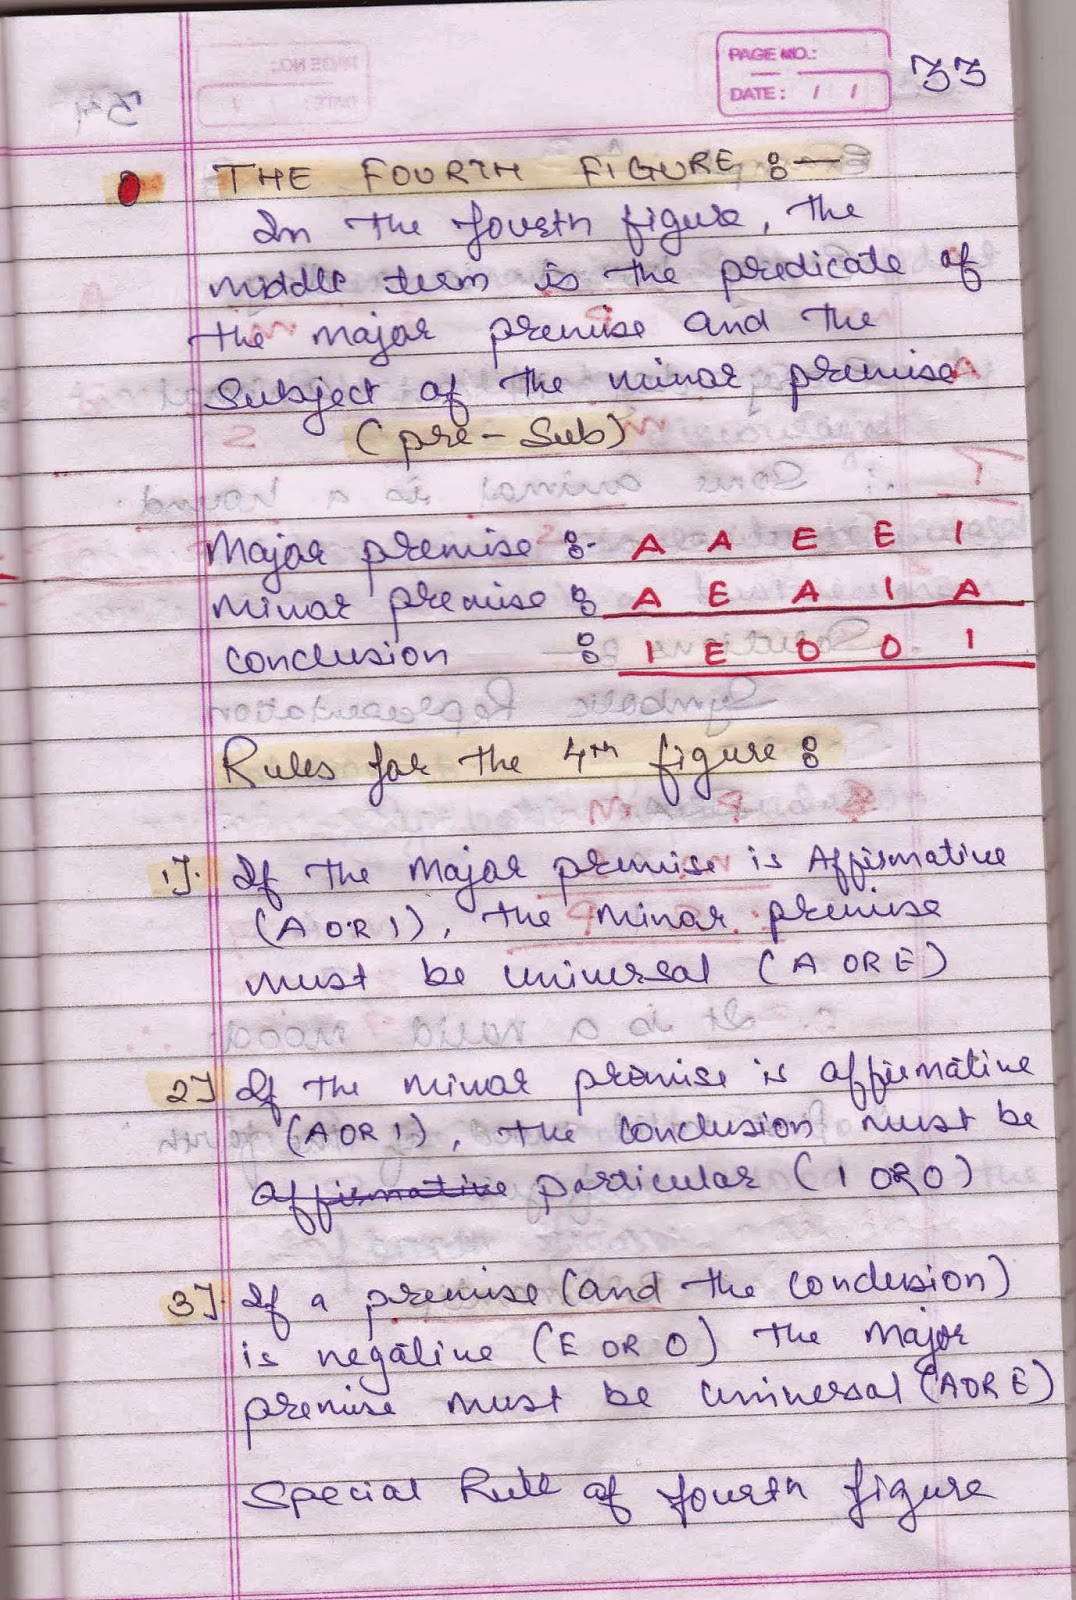 PAGE NO.:
DATE: / /
33
THE FOURTH FIGURE :—
In the fourth figure, the
middle term is the predicate of
the major premise and the
Subject of the minor premise
(pre - Sub)
Major premise :- A A E E I
minor premise : A E A I A
conclusion : I E O O I
Rules for the 4th figure :
1]. If the Major premise is Affirmative
(A OR I), the minor premise
must be universal (A OR E)
2] If the minor premise is affirmative
(A OR I), the conclusion must be
affirmative particular (I OR O)
3] If a premise (and the conclusion)
is negative (E OR O) the major
premise must be universal (A OR E)
Special Rule of fourth figure